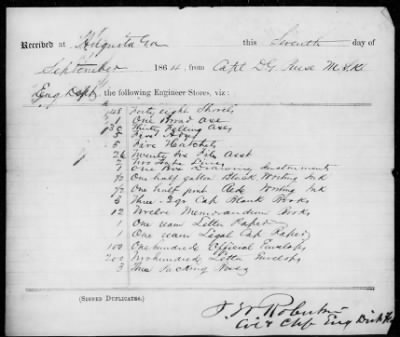 Received at Augusta Ga this Seventh day of
September 1864, from Capt
Eng Dept, the following Engineer Stores, viz:
48 Forty eight Shovels
1 One Broad axe
30 Thirty Felling Axes
5 Five Adzes
5 Five Hatchets
26 Twenty six File Asst
2 Two Tape Lines
1 One Box Drawing Instruments
1/2 One half gallon Black Writing Ink
1/2 One half pint Red Writing Ink
3 Three 3 qr Cap Blank Books
12 Twelve Memorandum Books
1 One ream Letter Paper
1 One ream Legal Cap Paper
100 One hundred Official Envelops
200 Two hundred Letter Envelops
3 Three Packing Boxes
(SIGNED DUPLICATES.)
Eng